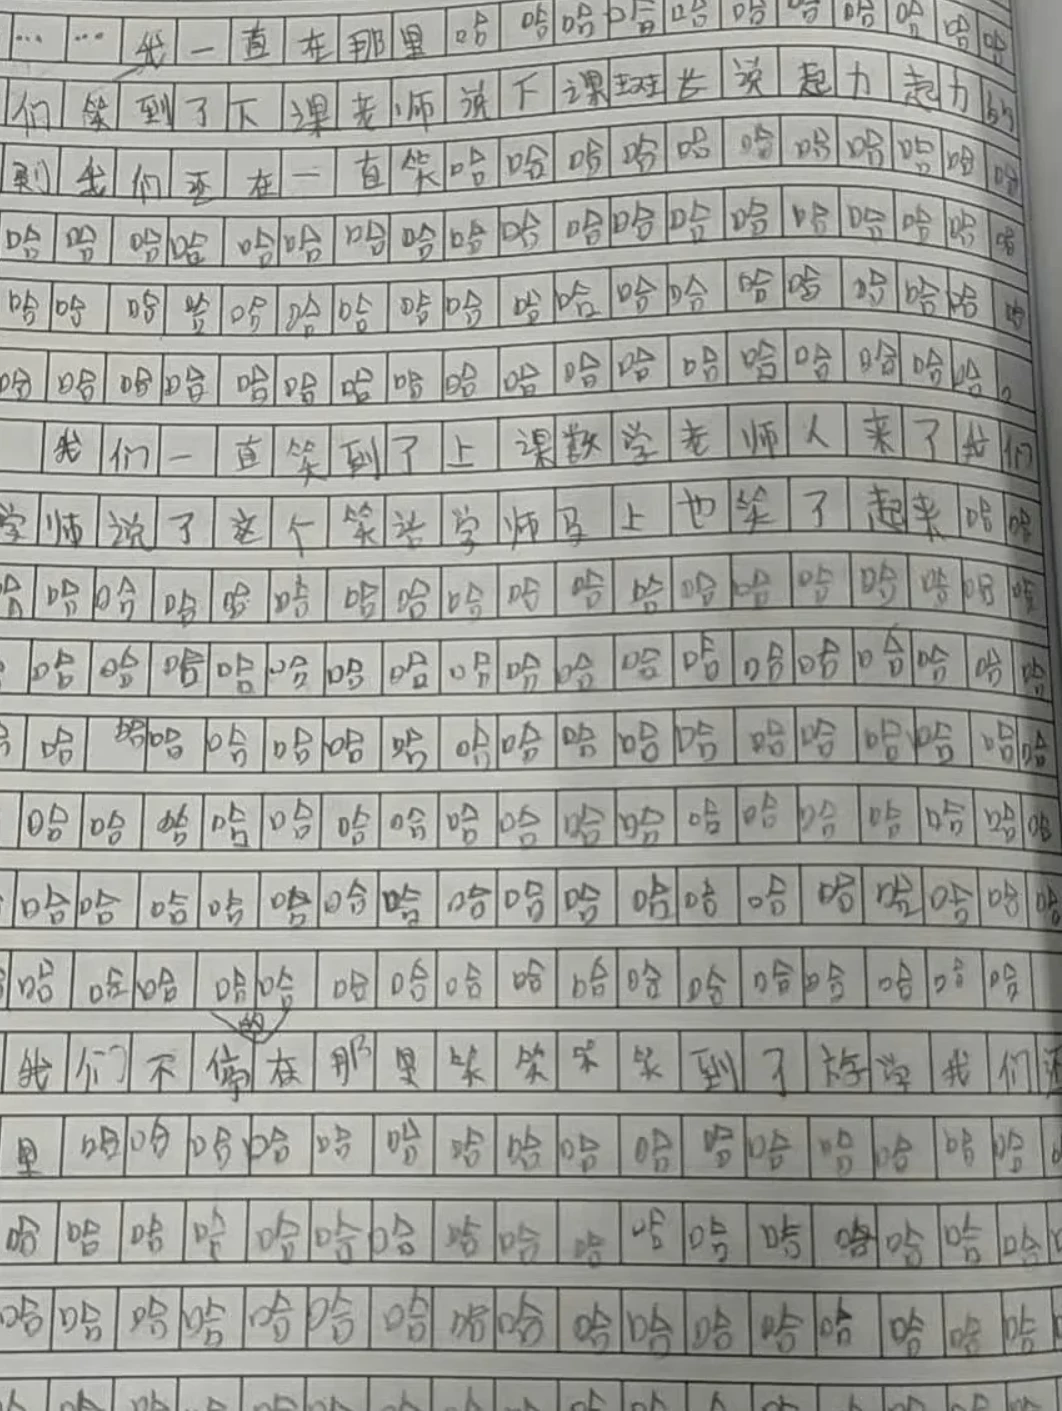 ……我一直在那里哈哈哈哈哈哈哈哈哈哈哈
们笑到了下课老师说下课班长说起力起力
到我们还在一直笑哈哈哈哈哈哈哈哈哈哈哈
哈哈哈哈哈哈哈哈哈哈哈哈哈哈哈哈哈哈哈
哈哈哈哈哈哈哈哈哈哈哈哈哈哈哈哈哈哈哈
哈哈哈哈哈哈哈哈哈哈哈哈哈哈哈哈哈哈。
我们一直笑到了上课数学老师人来了我们
学师说了这个笑话学师马上也笑了起来哈哈
哈哈哈哈哈哈哈哈哈哈哈哈哈哈哈哈哈哈哈
哈哈哈哈哈哈哈哈哈哈哈哈哈哈哈哈哈哈
哈哈哈哈哈哈哈哈哈哈哈哈哈哈哈哈哈哈
哈哈哈哈哈哈哈哈哈哈哈哈哈哈哈哈哈哈
哈哈哈哈哈哈哈哈哈哈哈哈哈哈哈哈哈哈
哈哈哈哈哈哈哈哈哈哈哈哈哈哈哈哈哈
我们不停的在那里笑笑笑笑到了放学我们还
里哈哈哈哈哈哈哈哈哈哈哈哈哈哈哈哈
哈哈哈哈哈哈哈哈哈哈哈哈哈哈哈哈哈
哈哈哈哈哈哈哈哈哈哈哈哈哈哈哈哈哈